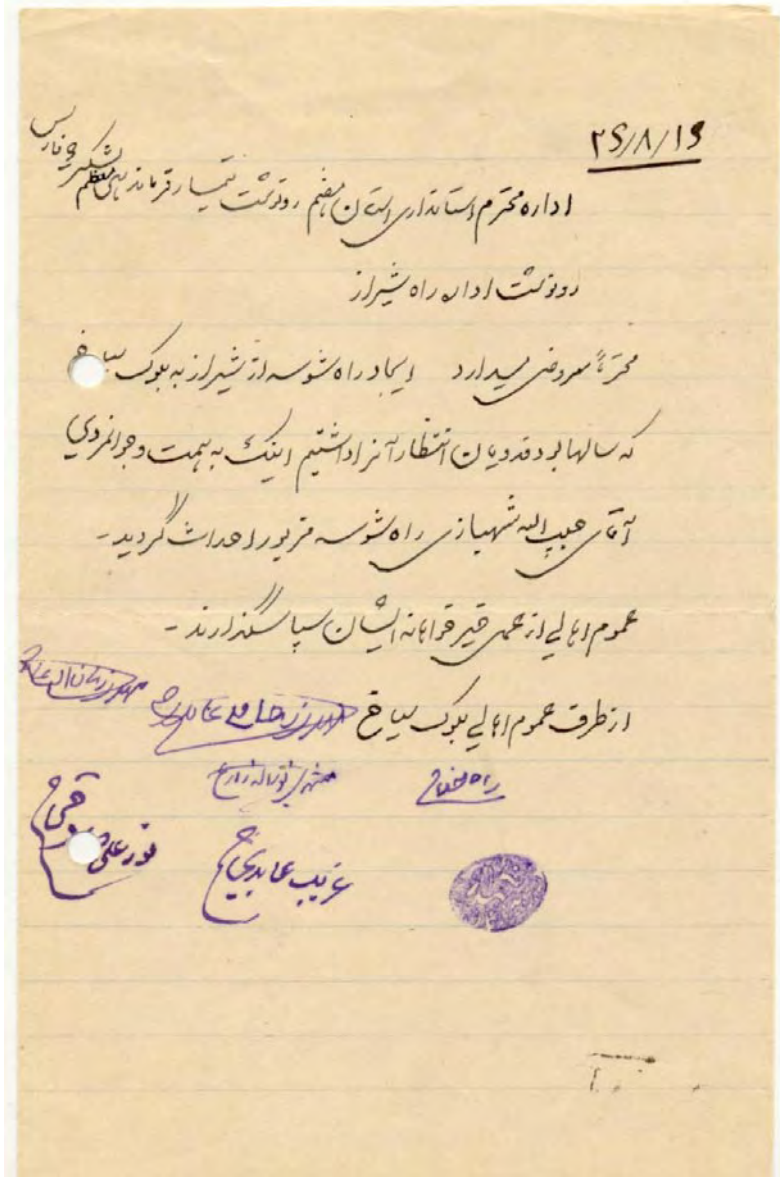 ۲۶/۸/۱۶
اداره محترم استانداری استان هفتم رونوشت تیمسار فرماندهی معظم لشکر فارس
رونوشت اداره راه شیراز
محترماً معروض میدارد ایجاد راه شوسه از شیراز به بلوک سیاخ
که سالها بود فدویان انتظار آنرا داشتیم اینک به همت و جوانمردی
آقای حبیب اله شهبازی راه شوسه مزبور احداث گردید -
عموم اهالی از عمل خیر خواهانه ایشان سپاسگذارند -
از طرف عموم اهالی بلوک سیاخ
غریب عابدی
نور علی